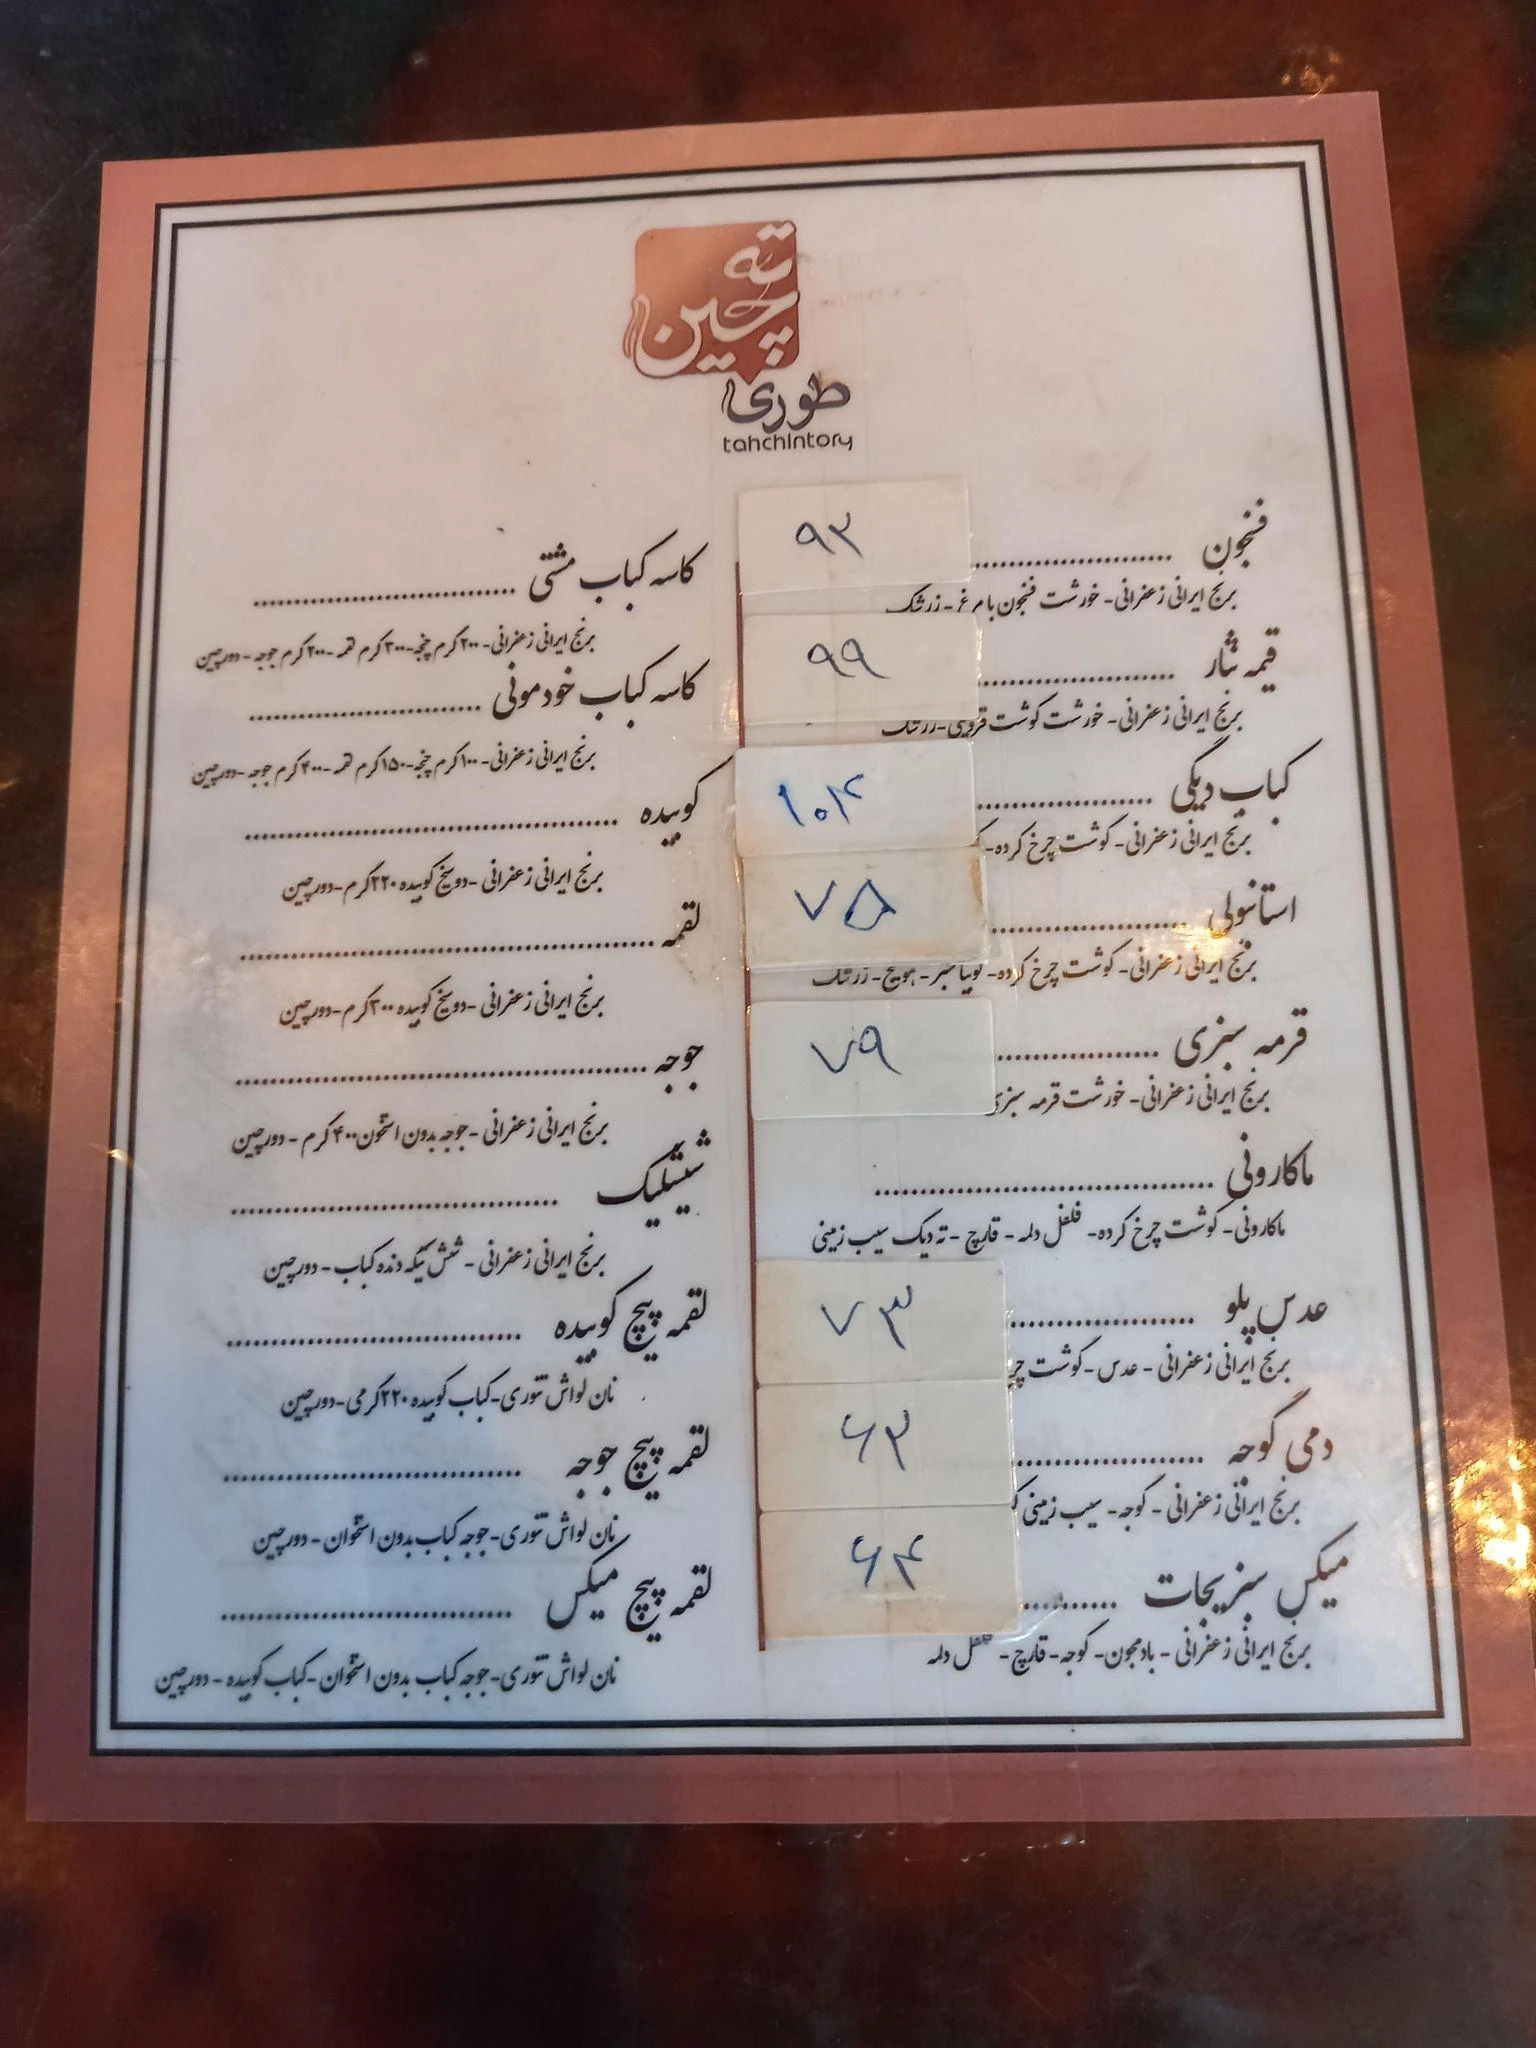 ته چین
طوری
tahchintory
فنجون ........................ ۹۳
برنج ایرانی زعفرانی- خورشت فنجون با مرغ - زرشک
قیمه نثار ........................ ۹۹
برنج ایرانی زعفرانی- خورشت گوشت قزوینی-زرشک
کباب دیگی ..................... ۱۰۴
برنج ایرانی زعفرانی- گوشت چرخ کرده-
استانبولی ........................ ۷۵
برنج ایرانی زعفرانی- گوشت چرخ کرده- لوبیا سبز - هویج - زرشک
قرمه سبزی .................... ۷۹
برنج ایرانی زعفرانی- خورشت قرمه سبزی
ماکارونی ........................................
ماکارونی- گوشت چرخ کرده- فلفل دلمه - قارچ - ته دیگ سیب زمینی
عدس پلو ...................... ۷۳
برنج ایرانی زعفرانی - عدس - گوشت
دمی گوجه ...................... ۶۳
برنج ایرانی زعفرانی - گوجه - سیب زمینی
میکس سبزیجات ............ ۶۴
برنج ایرانی زعفرانی - بادمجون- گوجه- قارچ - فلفل دلمه
کاسه کباب مشتی ................................
برنج ایرانی زعفرانی- ۲۰۰ گرم چنجه- ۳۰۰ گرم لقمه -۲۰۰ گرم جوجه - دورچین
کاسه کباب خودمونی ............................
برنج ایرانی زعفرانی- ۱۰۰ گرم چنجه- ۱۵۰ گرم لقمه -۴۰۰ گرم جوجه -دورچین
کوبیده ............................................
برنج ایرانی زعفرانی -دو سیخ کوبیده ۲۲۰ گرم-دورچین
لقمه ................................................
برنج ایرانی زعفرانی -دو سیخ کوبیده ۳۰۰ گرم-دورچین
جوجه ................................................
برنج ایرانی زعفرانی -جوجه بدون استخون ۴۰۰ گرم - دورچین
شیشلیک ........................................
برنج ایرانی زعفرانی - شش تیکه دنده کباب - دورچین
لقمه پیچ کوبیده ....................................
نان لواش تنوری-کباب کوبیده ۲۲۰ گرمی-دورچین
لقمه پیچ جوجه ....................................
نان لواش تنوری-جوجه کباب بدون استخوان - دورچین
لقمه پیچ میکس ....................................
نان لواش تنوری-جوجه کباب بدون استخوان -کباب کوبیده - دورچین